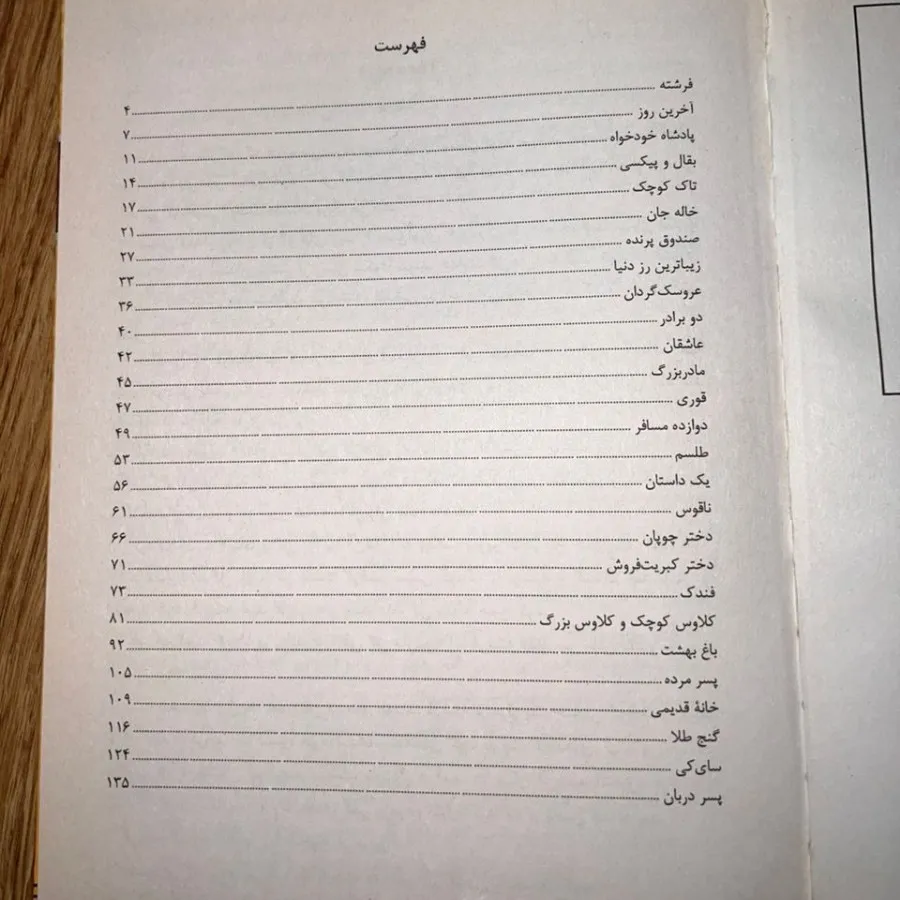 فهرست
فرشته ........ ۴
آخرین روز ........ ۷
پادشاه خودخواه ........ ۱۱
بقال و پیکسی ........ ۱۴
تاک کوچک ........ ۱۷
خاله جان ........ ۲۱
صندوق پرنده ........ ۲۷
زیباترین رز دنیا ........ ۳۳
عروسک‌گردان ........ ۳۶
دو برادر ........ ۴۰
عاشقان ........ ۴۲
مادربزرگ ........ ۴۵
قوری ........ ۴۷
دوازده مسافر ........ ۴۹
طلسم ........ ۵۳
یک داستان ........ ۵۶
ناقوس ........ ۶۱
دختر چوپان ........ ۶۶
دختر کبریت‌فروش ........ ۷۱
فندک ........ ۷۳
کلاوس کوچک و کلاوس بزرگ ........ ۸۱
باغ بهشت ........ ۹۲
پسر مرده ........ ۱۰۵
خانهٔ قدیمی ........ ۱۰۹
گنج طلا ........ ۱۱۶
سای‌کی ........ ۱۲۴
پسر دربان ........ ۱۳۵